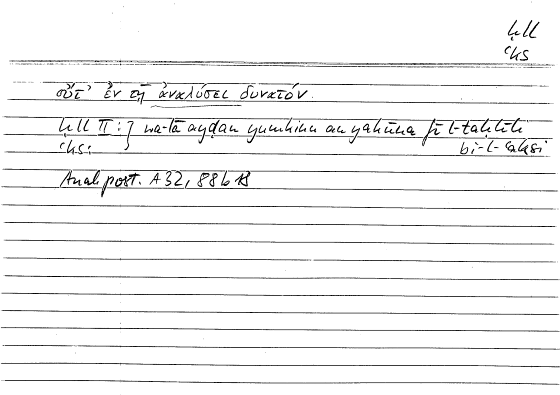 ḥll
ʿks
οὔτ’ ἐν τῇ ἀναλύσει δυνατόν.
ḥll II : } wa-lā ayḍan yumkinu an yakūna fī l-taḥlīli
ʿks : bi-l-ʿaksi
Anal. post. A 32, 88b 18